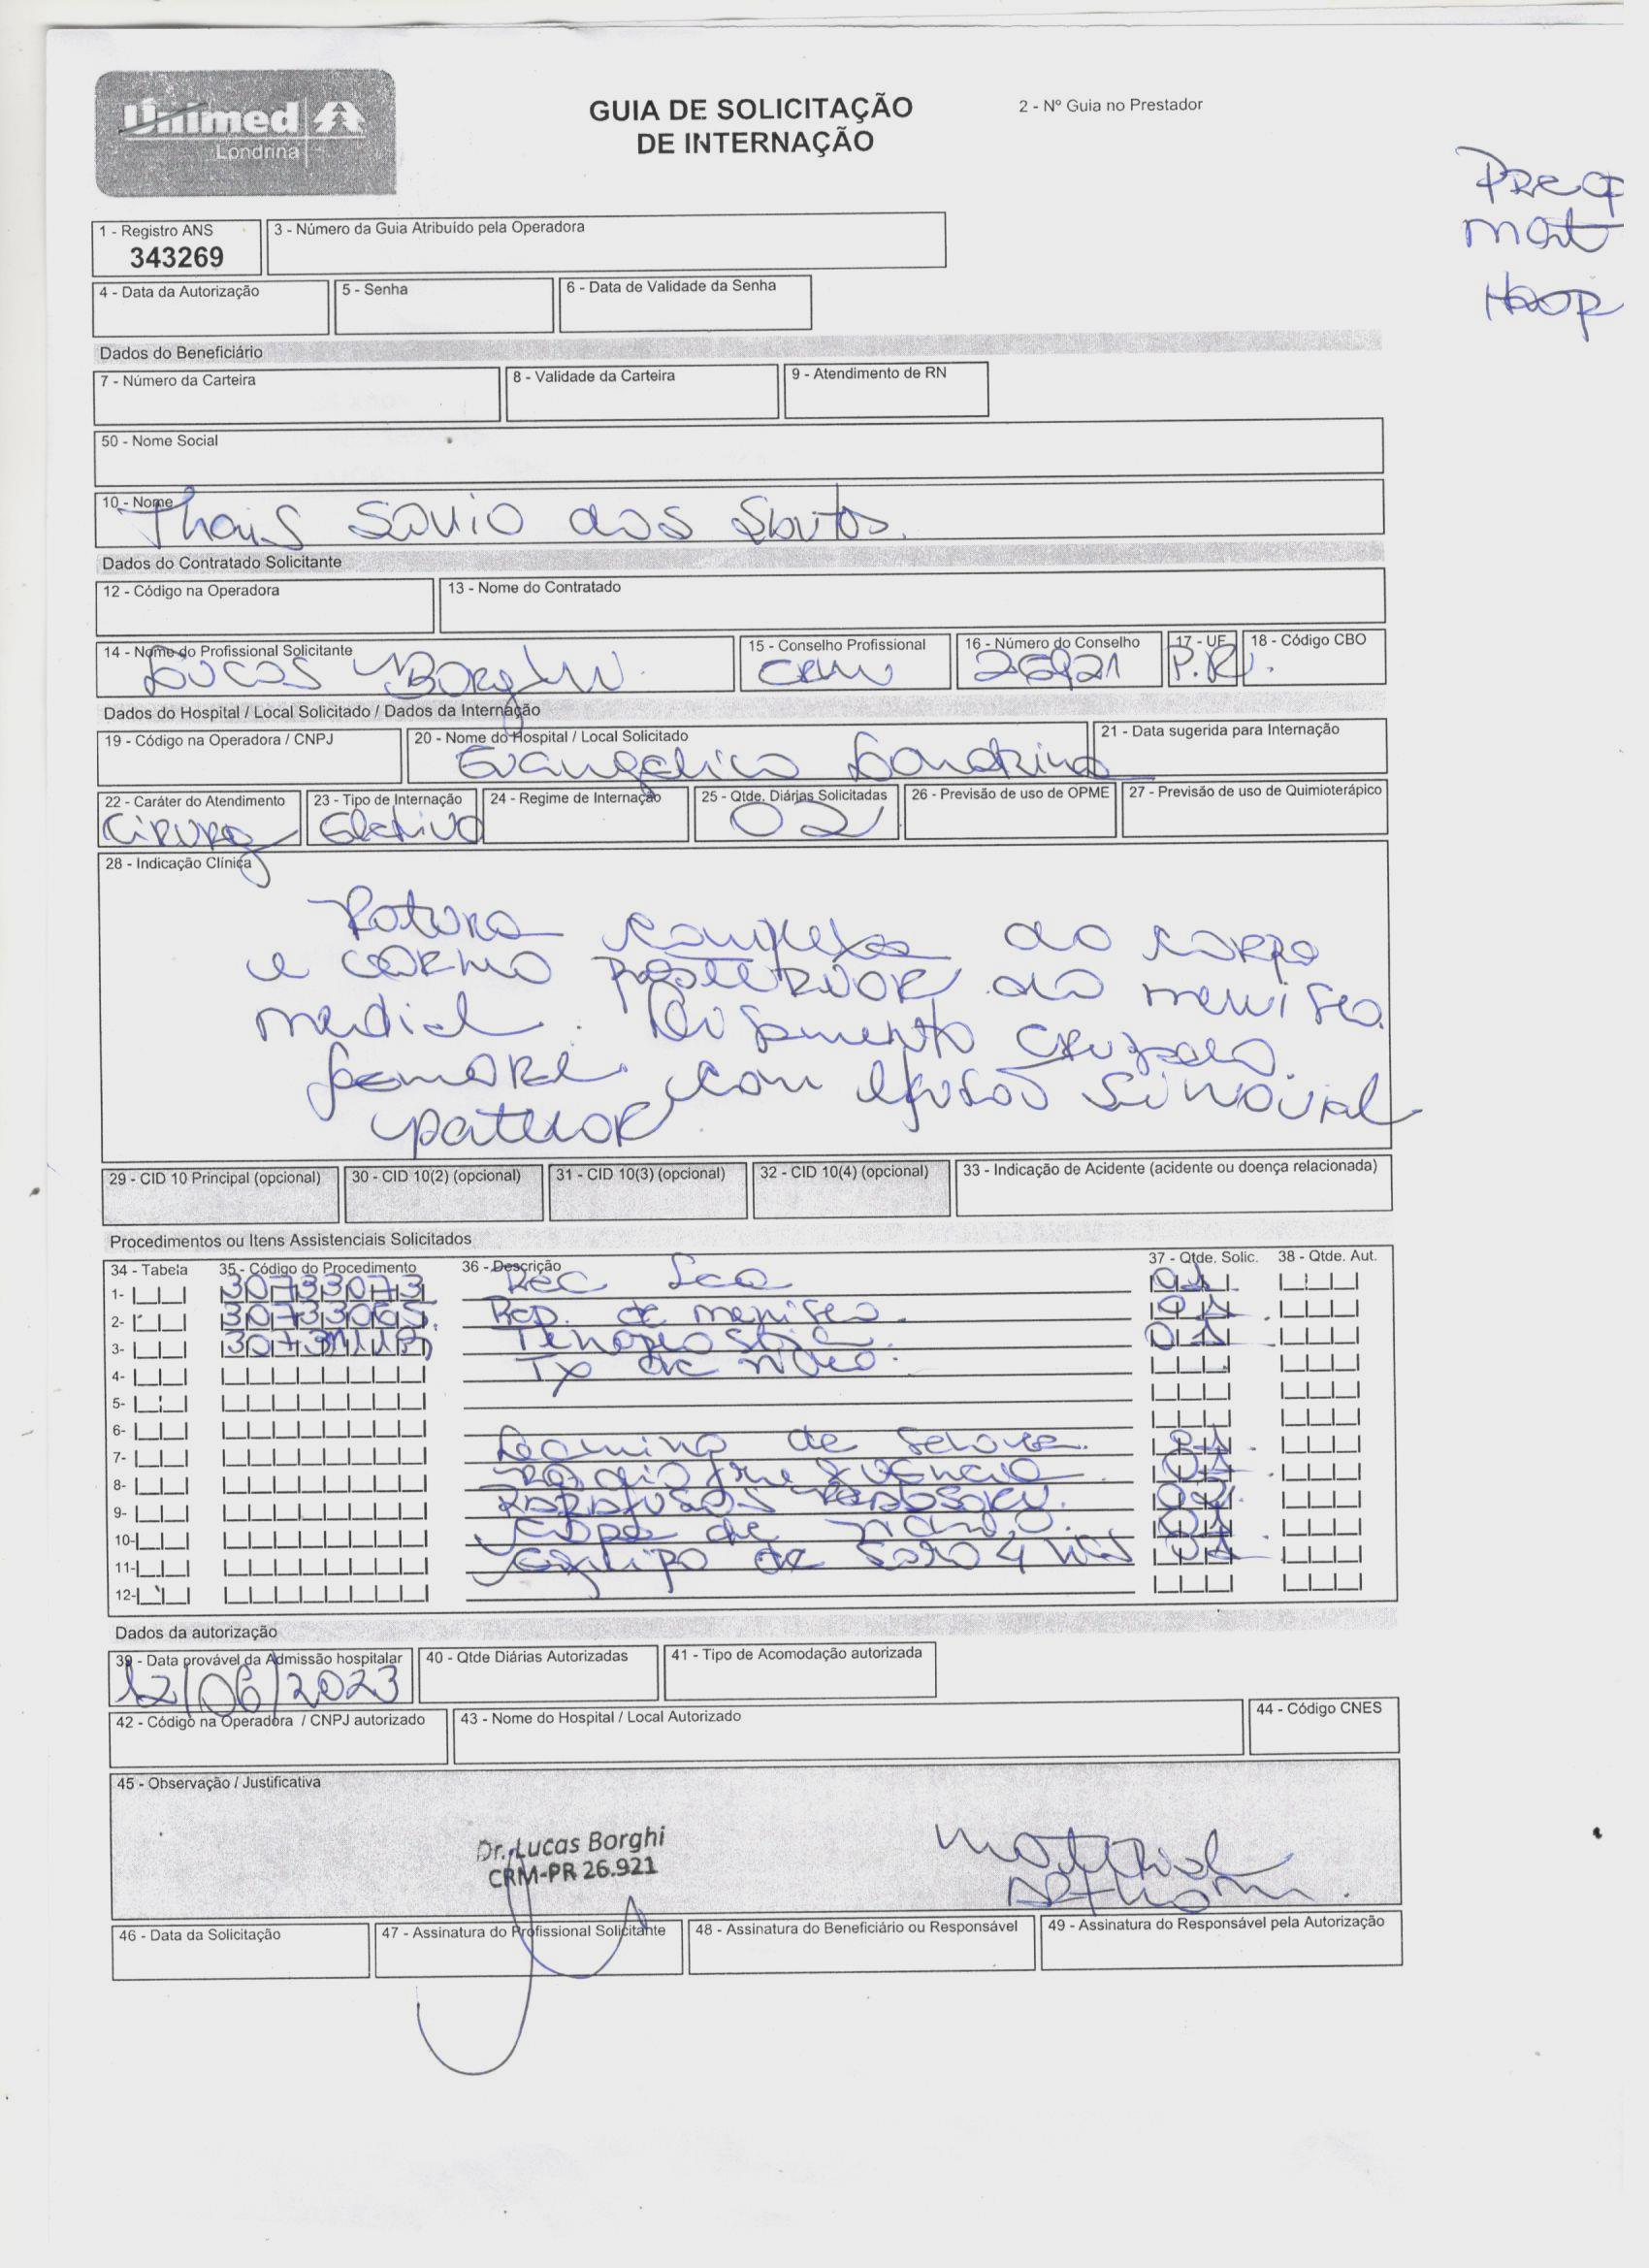 Unimed
Londrina
GUIA DE SOLICITAÇÃO
DE INTERNAÇÃO
2 - Nº Guia no Prestador
mat
1 - Registro ANS
343269
3 - Número da Guia Atribuído pela Operadora
4 - Data da Autorização
5 - Senha
6 - Data de Validade da Senha
Dados do Beneficiário
7 - Número da Carteira
8 - Validade da Carteira
9 - Atendimento de RN
50 - Nome Social
10 - Nome
Thais Savio dos Santos.
Dados do Contratado Solicitante
12 - Código na Operadora
13 - Nome do Contratado
14 - Nome do Profissional Solicitante
Lucas Borghi
15 - Conselho Profissional
CRM
16 - Número do Conselho
26921
17 - UF
P.R.
18 - Código CBO
Dados do Hospital / Local Solicitado / Dados da Internação
19 - Código na Operadora / CNPJ
20 - Nome do Hospital / Local Solicitado
Evangelico Londrina
21 - Data sugerida para Internação
22 - Caráter do Atendimento
23 - Tipo de Internação
Eletivo
24 - Regime de Internação
25 - Qtde. Diárias Solicitadas
02
26 - Previsão de uso de OPME
27 - Previsão de uso de Quimioterápico
28 - Indicação Clínica
Rotura complexa do corpo
e corno posterior do menisco
medial. Ligamento cruzado.
femoral com efusão sinovial
29 - CID 10 Principal (opcional)
30 - CID 10(2) (opcional)
31 - CID 10(3) (opcional)
32 - CID 10(4) (opcional)
33 - Indicação de Acidente (acidente ou doença relacionada)
Procedimentos ou Itens Assistenciais Solicitados
34 - Tabela
35 - Código do Procedimento
36 - Descrição
37 - Qtde. Solic.
38 - Qtde. Aut.
1- 30733073 Rec Lca 01
2- 30733065 Rep. de menisco. 01
3- 01
4- Tx de video.
5-
6-
7- Lamina de 01
8- Radiofrequencia 01
9-
10- Capa de video. 01
11- Equipo de soro 4 vias 01
12-
Dados da autorização
39 - Data provável da Admissão hospitalar
12/06/2023
40 - Qtde Diárias Autorizadas
41 - Tipo de Acomodação autorizada
42 - Código na Operadora / CNPJ autorizado
43 - Nome do Hospital / Local Autorizado
44 - Código CNES
45 - Observação / Justificativa
Dr. Lucas Borghi
CRM-PR 26.921
46 - Data da Solicitação
47 - Assinatura do Profissional Solicitante
48 - Assinatura do Beneficiário ou Responsável
49 - Assinatura do Responsável pela Autorização